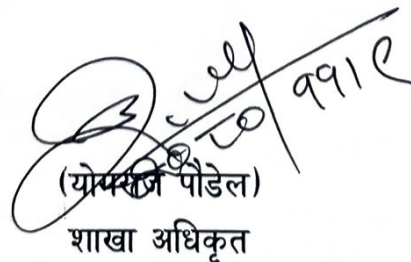 ११।९
(योगराज पौडेल)
शाखा अधिकृत